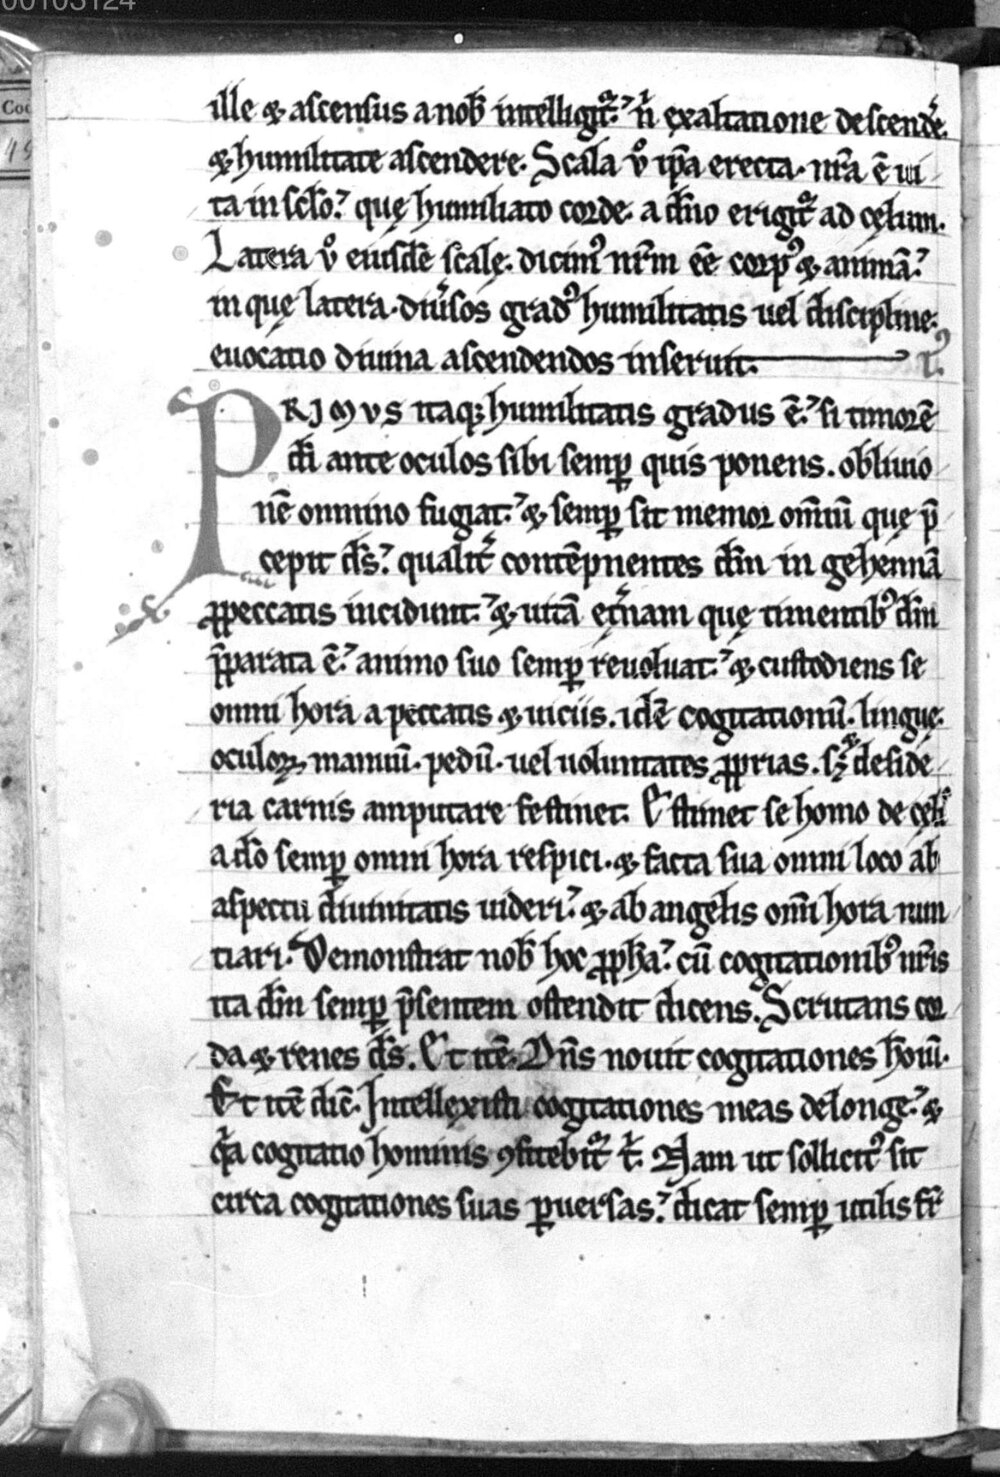 00103124
Coc
ille ⁊ ascensus a nob̄ intelligit᷑. n̄ exaltatione descend̄e.
⁊ humilitate ascendere. Scala v̊ ip̄a erecta. nr̄a ē ui
ta in sc̄lo. quę humiliato corde. a dn̄o erigit᷑ ad cęlum.
Latera v̊ eiusdē scalę. dicimꝰ nr̄m ēē corpꝰ ⁊ animā.
in quę latera. diu̾sos gradꝰ humilitatis uel discipline.
euocatio diuina ascendendos inseruit. I.
PRIMVS itaq; humilitatis gradus ē. si timorē
dī ante oculos sibi semp̱ quis ponens. obliuio
nē omnino fugiat. ⁊ semp̱ sit memor om̄iū quę p̄
cepit ds̄. qualit̾ contēpnentes dm̄ in gehennā
ꝓ peccatis incidunt. ⁊ uitā et̾nam quę timentibꝰ dm̄
p̄parata ē. animo suo semp̱ reuoluat. ⁊ custodiens se
omni hora a peccatis ⁊ uiciis. idē cogitationū. linguę.
oculoꝝ. manuū. pedū. uel uoluntates ꝓprias. sꝫ ⁊ deside
ria carnis amputare festinet. Estimet se homo de cęlis
a dō semp̱ omni hora respici. ⁊ facta sua omni loco ab
aspectu diuinitatis uideri. ⁊ ab angelis om̄i hora nun
tiari. Demonstrat nob̄ hoc ꝓph̄a. cū cogitationibꝰ nr̄is
ita dm̄ semp̱ p̄sentem ostendit dicens. Scrutans cor
da ⁊ renes ds̄. Et itē. Dn̄s nouit cogitationes hoīū.
Et itē dic̄. Intellexisti cogitationes meas delonge. ⁊
q̄a cogitatio hominis ꝯfitebit᷑ t̄. Nam ut sollicitꝰ sit
circa cogitationes suas p̱uersas. dicat semp̱ utilis fr̄